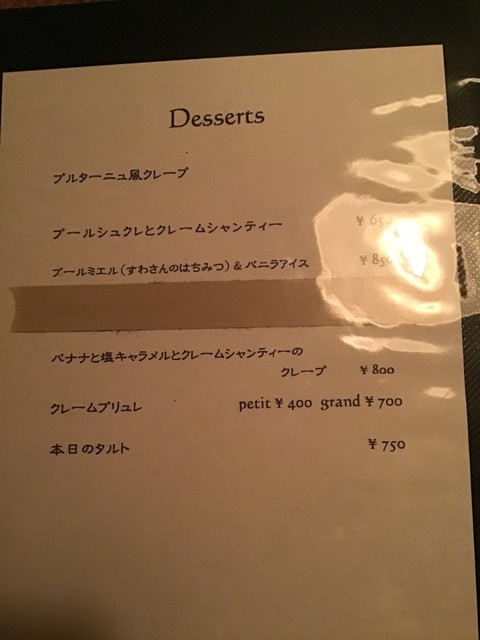 Desserts
ブルターニュ風クレープ
ブールシュクレとクレームシャンティー ¥650
ブールミエル(すわさんのはちみつ)&バニラアイス ¥850
バナナと塩キャラメルとクレームシャンティーの
クレープ ¥800
クレームブリュレ petit ¥400 grand ¥700
本日のタルト ¥750